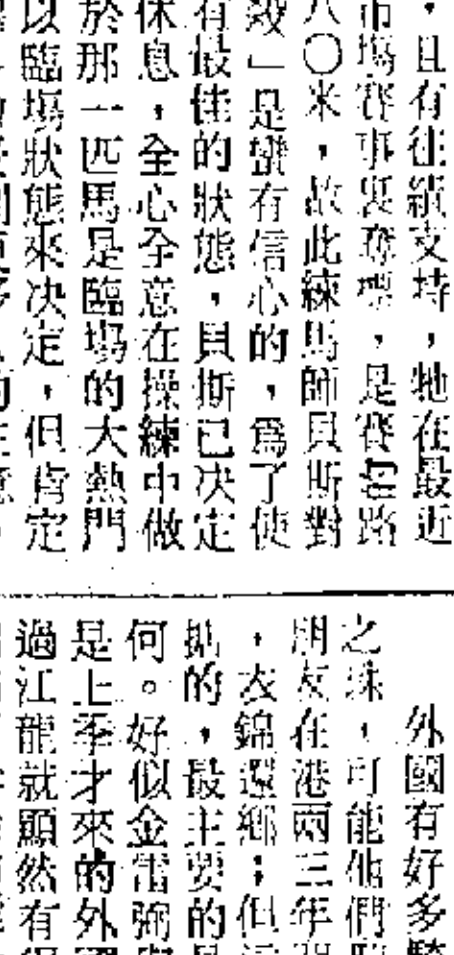 ，且有往績支持，牠在最近
市場賽事裏奪標，是賽的路
八〇米，故此練馬師貝斯對
毅」是蠻有信心的，爲了使
有最佳的狀態，貝斯已決定
休息，全心全意在操練中做
於那一匹馬是臨場的大熱門
以臨場狀態來決定，但肯定
外國有好多騎
之珠，可能他們
朋友在港兩三年
，衣錦還鄉；但
的，最主要的是
何。好似金雷彌
是上季才來的外國
過江龍就顯然有